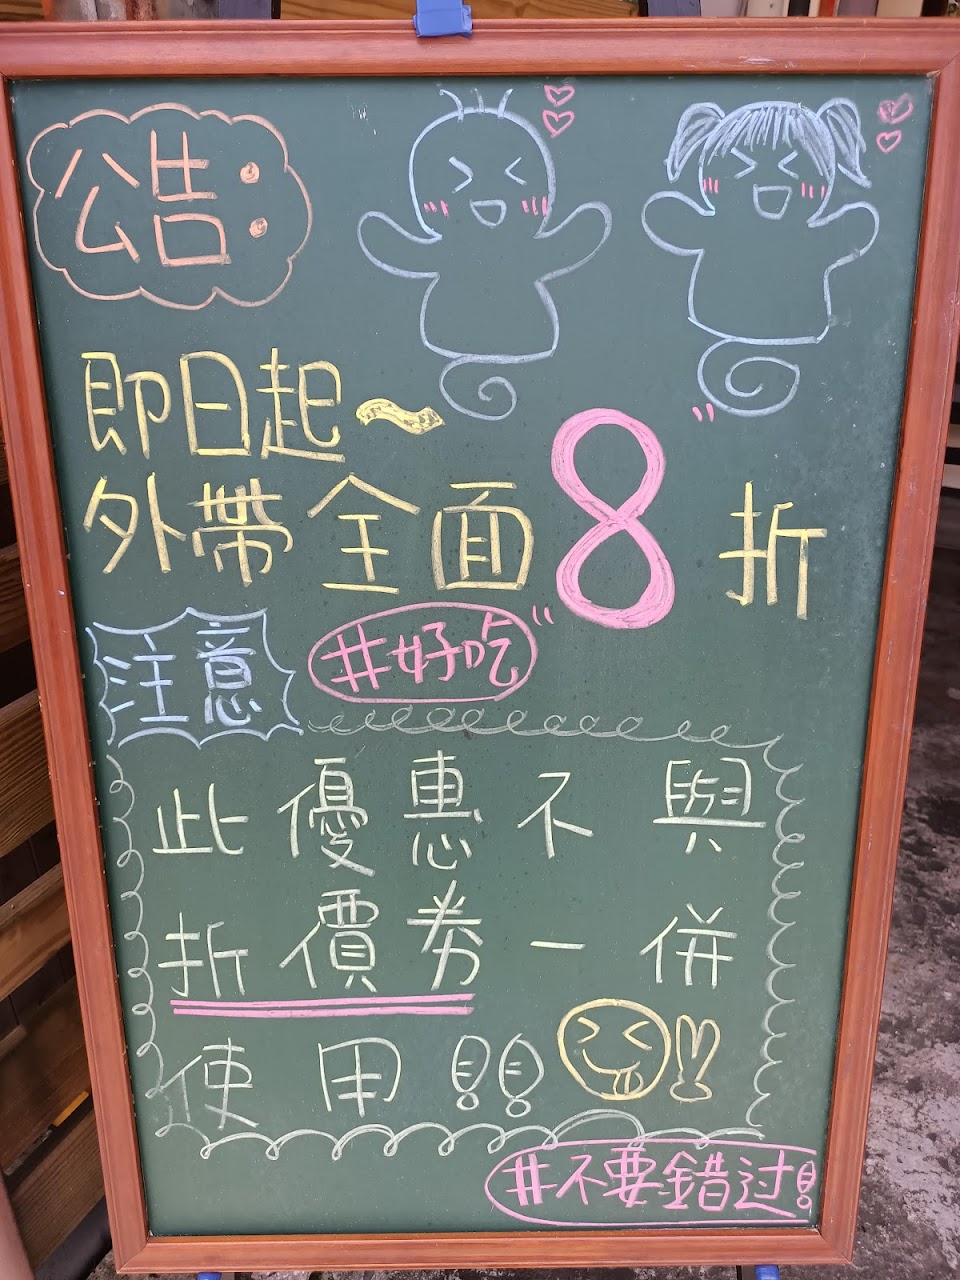 公告:
即日起~
外帶全面8折
注意
#好吃
此優惠不與
折價券一併
使用!!
#不要錯过!